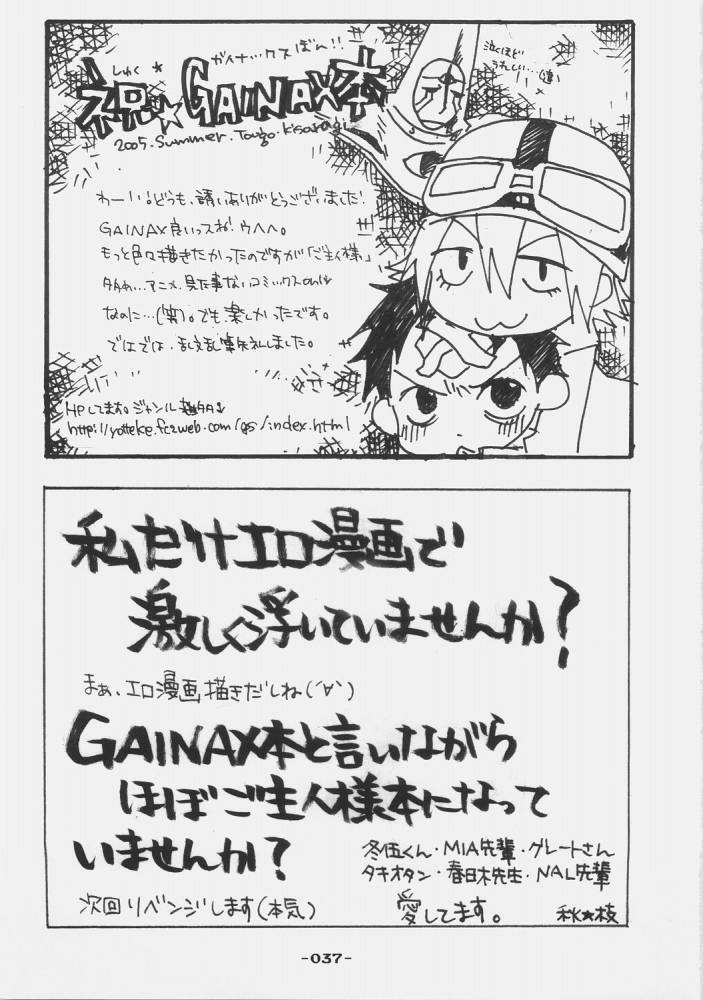 しゅく★ ガイナックスぼん!!
祝☆GAINAX本
2005.Summer.Tougo.Kisaragi
泣くほど
うれしい…
わーい!どうも、誘いありがとうございました!
GAINAX良いっスね!ウヘヘ。
もっと色々描きたかったのですが「ご主人様」
アニメ見た事ないコミックスonly
なのに…(笑)。でも楽しかったです。
ではでは、乱文乱筆失礼しました。
HPしてます。ジャンル
http://yotteke.fc2web.com/gs/index.html
私だけエロ漫画で
激しく浮いていませんか?
まぁ、エロ漫画描きだしね(´∀`)
GAINAX本と言いながら
ほぼご主人様本になって
いませんか?
冬伍くん・MIA先輩・グレートさん
タキオタン・春日木先生・NAL先輩
次回リベンジします(本気)
愛してます。 秋★枝
-037-